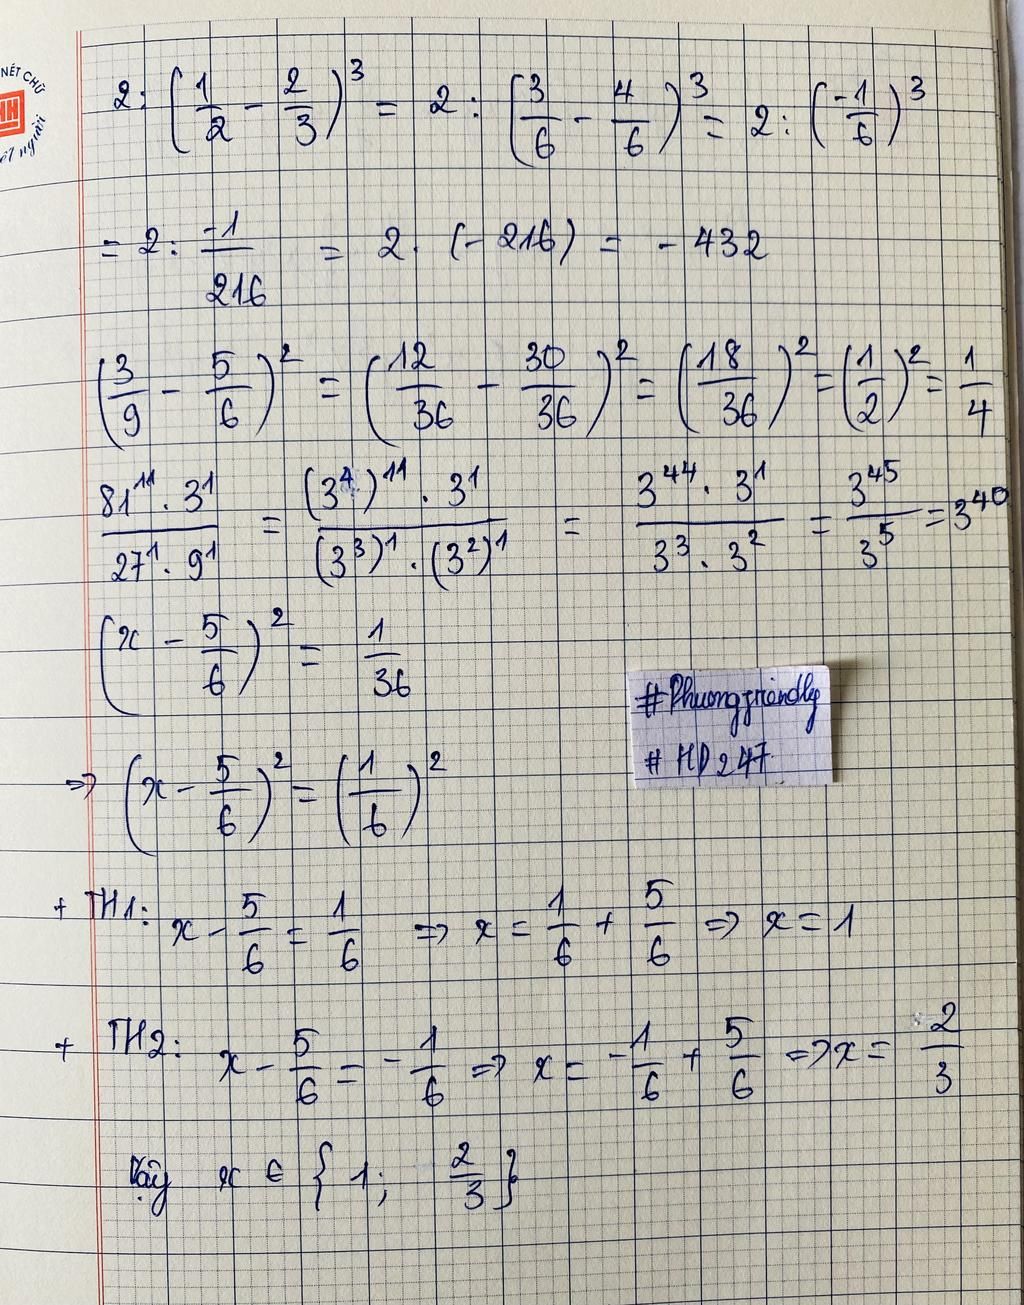 NÉT CHỮ
2 : (1/2 - 2/3)^3 = 2 : (3/6 - 4/6)^3 = 2 : (-1/6)^3
= 2 : -1/216 = 2 . (-216) = -432
(3/9 - 5/6)^2 = (12/36 - 30/36)^2 = (18/36)^2 = (1/2)^2 = 1/4
81^11 . 3^1 / 27^1 . 9^1 = (3^4)^11 . 3^1 / (3^3)^1 . (3^2)^1 = 3^44 . 3^1 / 3^3 . 3^2 = 3^45 / 3^5 = 3^40
(x - 5/6)^2 = 1/36
#Phuongfriendly
#HD247
=> (x - 5/6)^2 = (1/6)^2
+ TH1: x - 5/6 = 1/6 => x = 1/6 + 5/6 => x = 1
+ TH2: x - 5/6 = -1/6 => x = -1/6 + 5/6 => x = 2/3
Vậy x ∈ { 1; 2/3 }